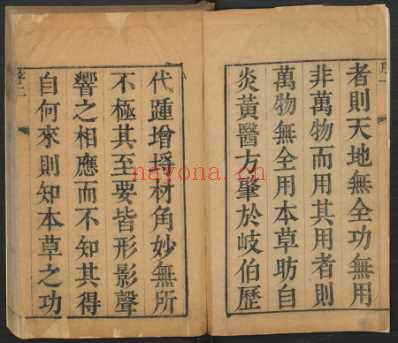 者則天地無全功無用
非萬物而用其用者則
萬物無全用本草昉自
炎黃醫方肇於岐伯歷
代踵增掄材角妙無所
不極其至要皆形影聲
響之相應而不知其得
自何來則知本草之功
序二
nayona.cn